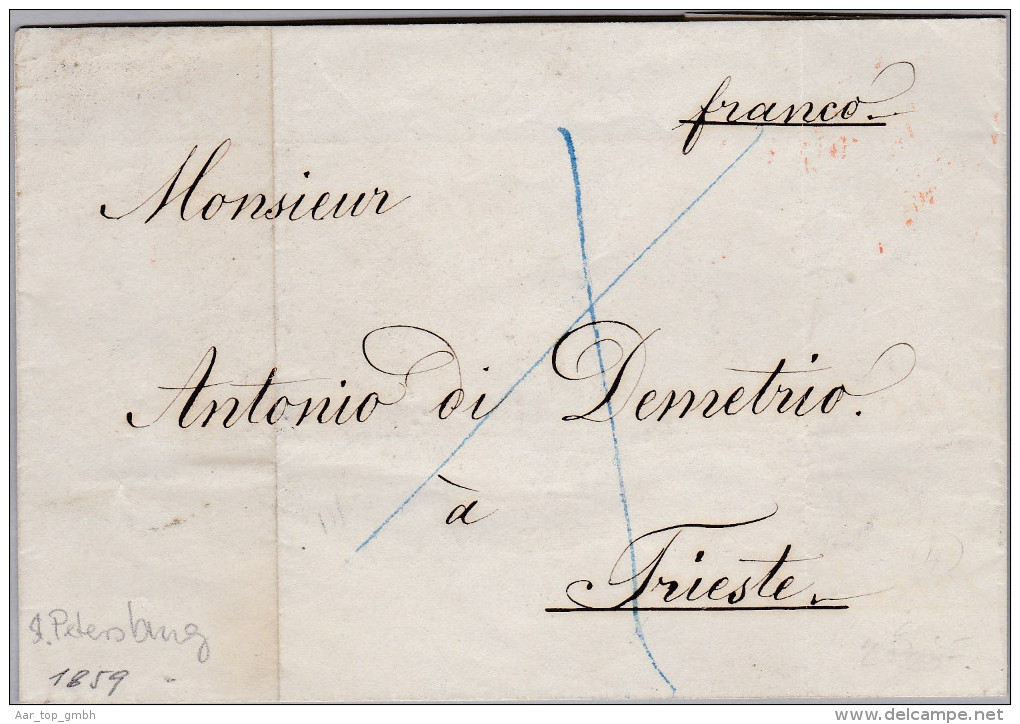 franco
Monsieur
Antonio di Demetrio.
à
Trieste
S. Petersburg
1859
Aar_top_gmbh
delcampe.net